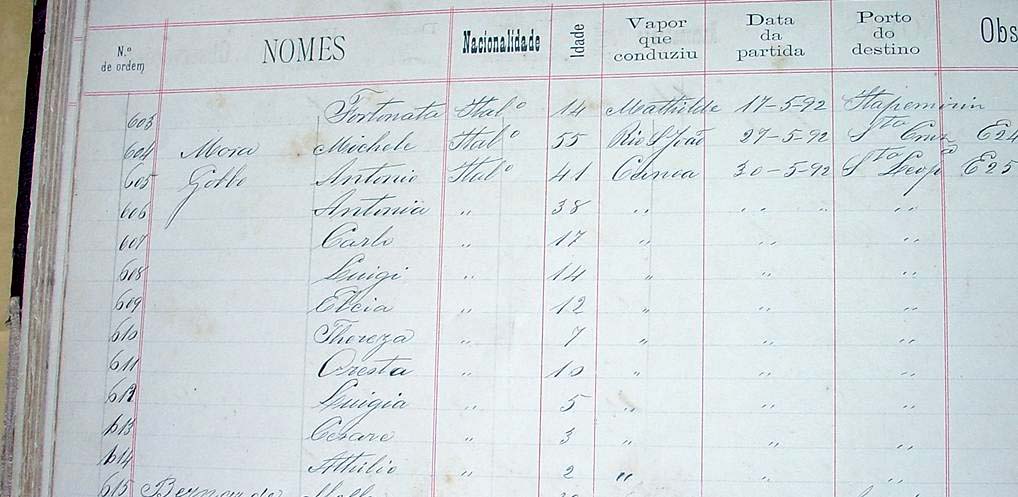 N.º de ordem NOMES Nacionalidade Idade Vapor que conduziu Data da partida Porto do destino Obs
603 Fortunata Ital.º 14 Mathilde 17-5-92 Itapemirin
604 Mora Michele Ital.º 55 Rio S. João 27-5-92 Sta Cruz E24
605 Gobbo Antonio Ital.º 41 30-5-92 Sta Leopª E25
606 Antonia " 38 " " " " "
607 Carlo " 17 " " "
608 Luigi " 14 " " "
609 " 12 " " "
610 Thereza " 7 " " "
611 Oresta " 10 " " "
612 Luigia " 5 " " "
613 Cesare " 3 " " "
614 Attilio " 2 " " "
615